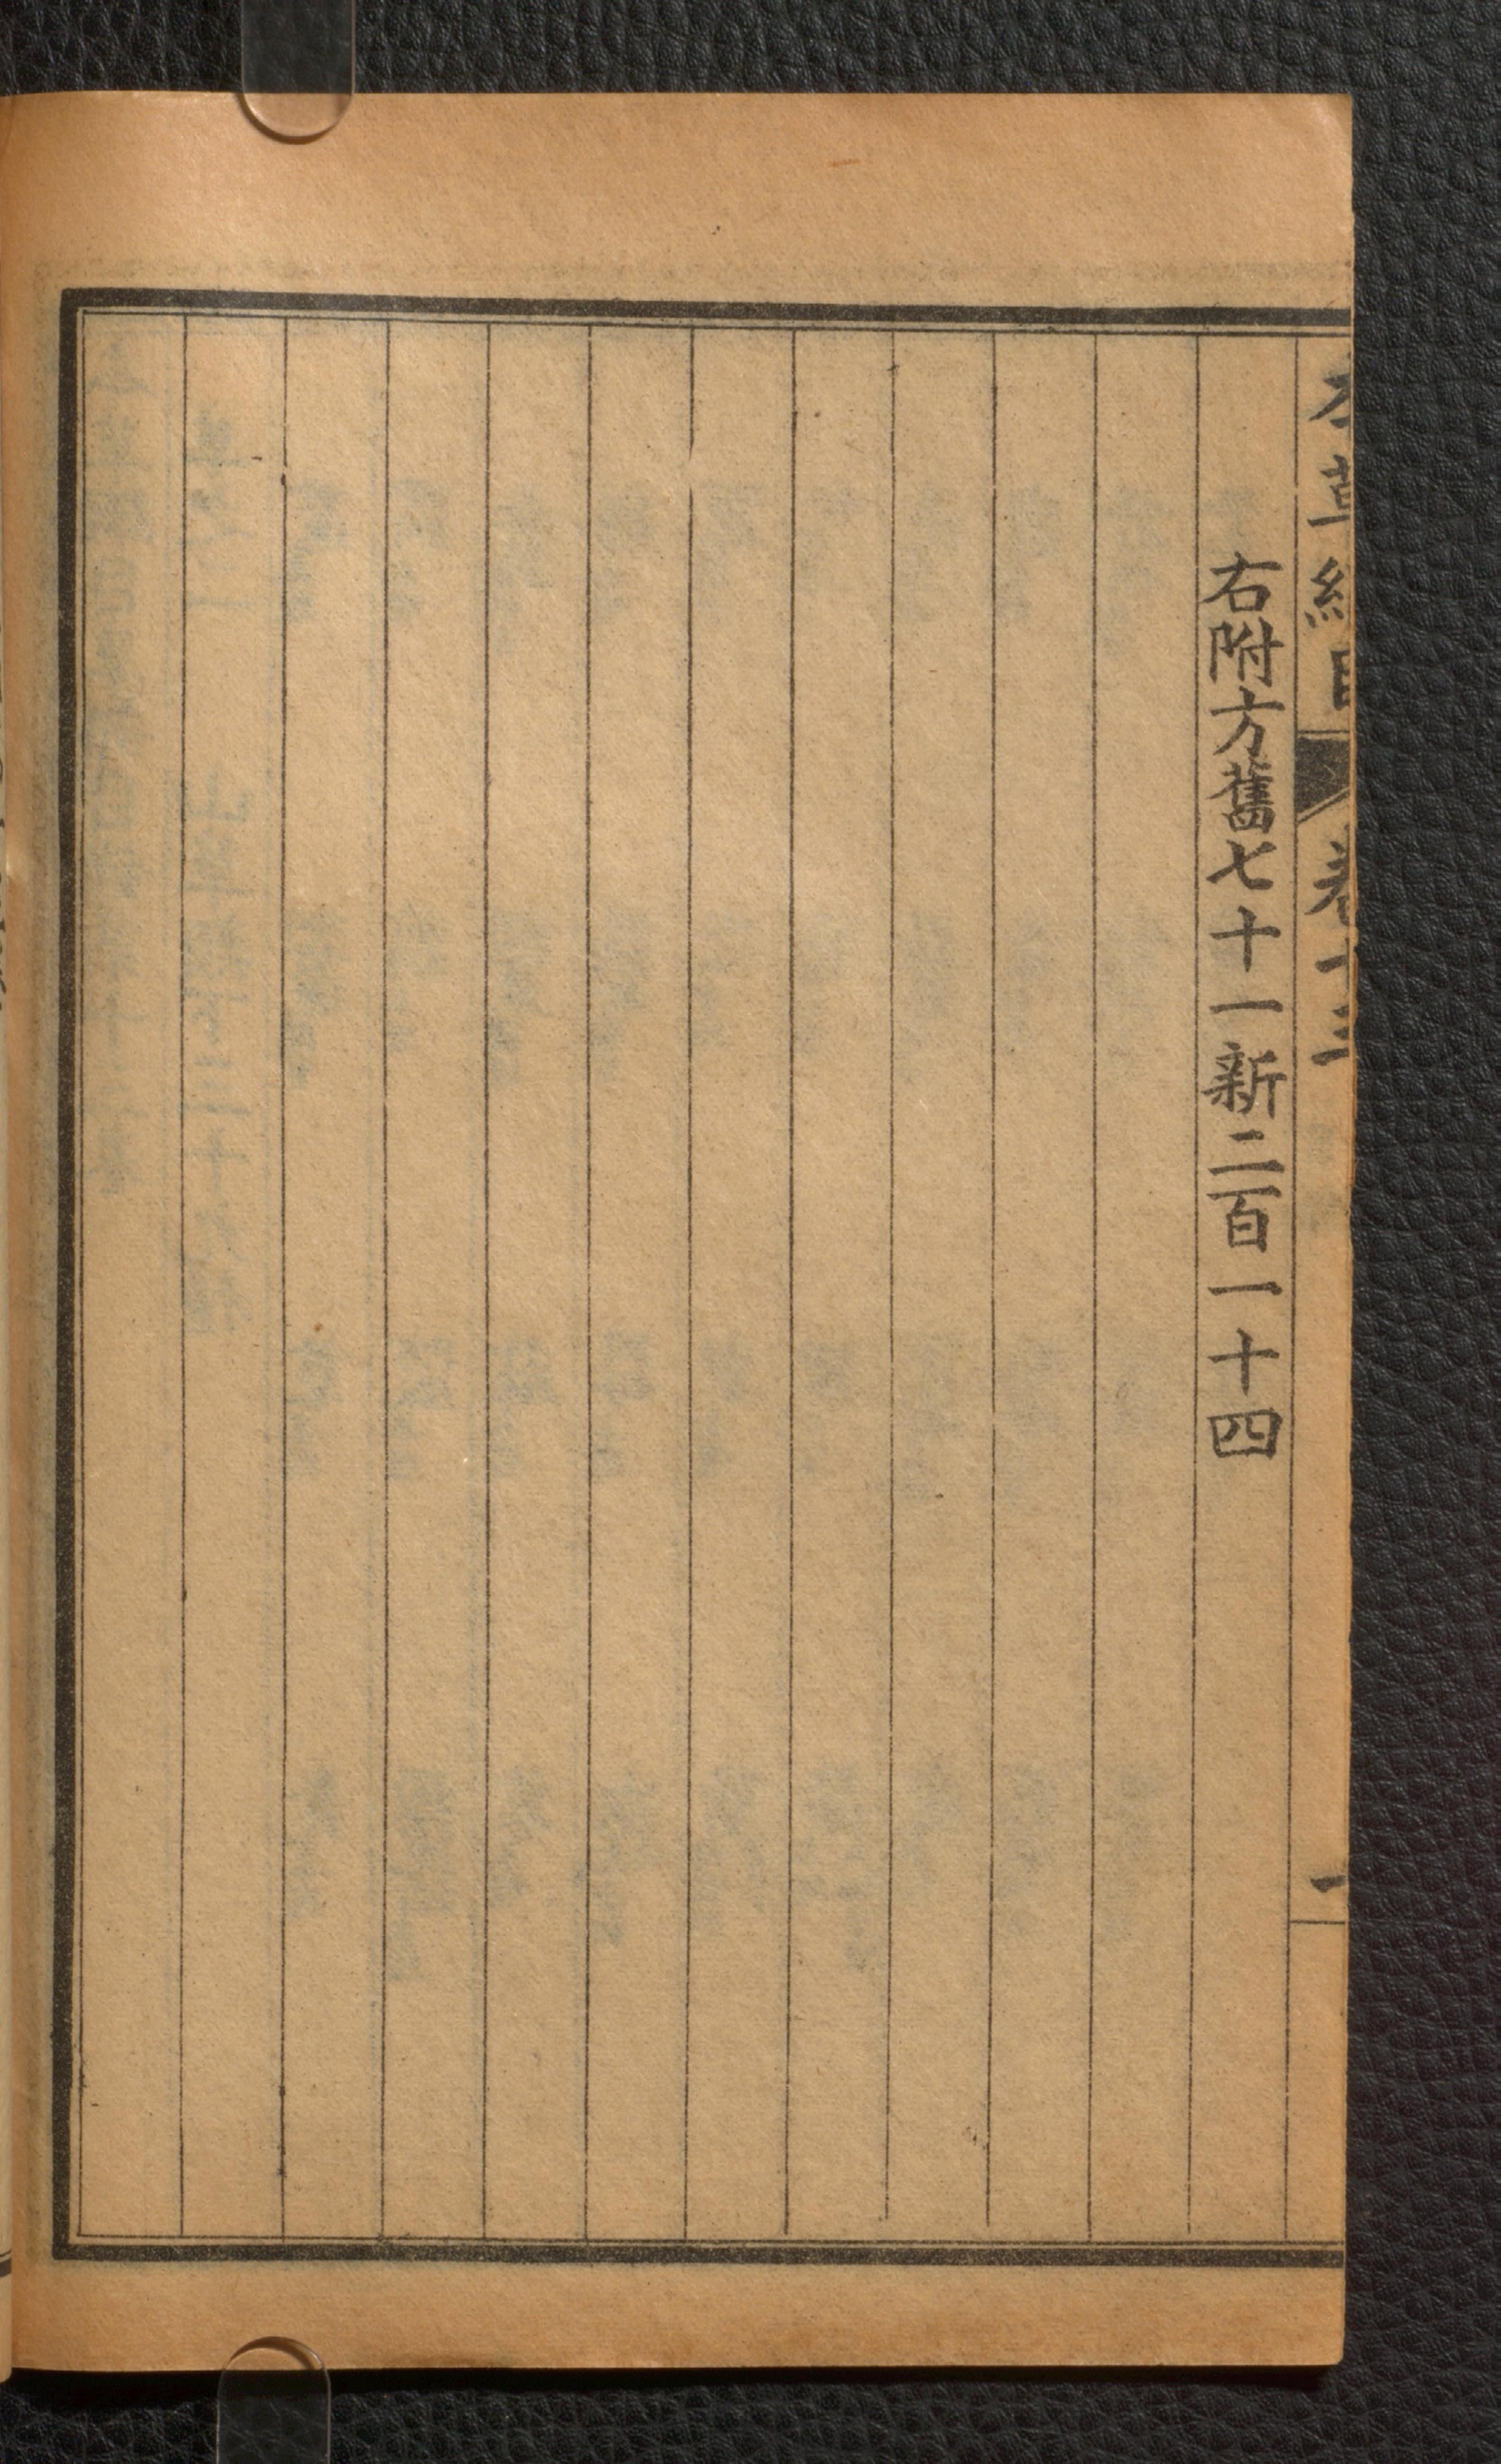 本草綱目 卷十三 一
右附方舊七十一新二百一十四